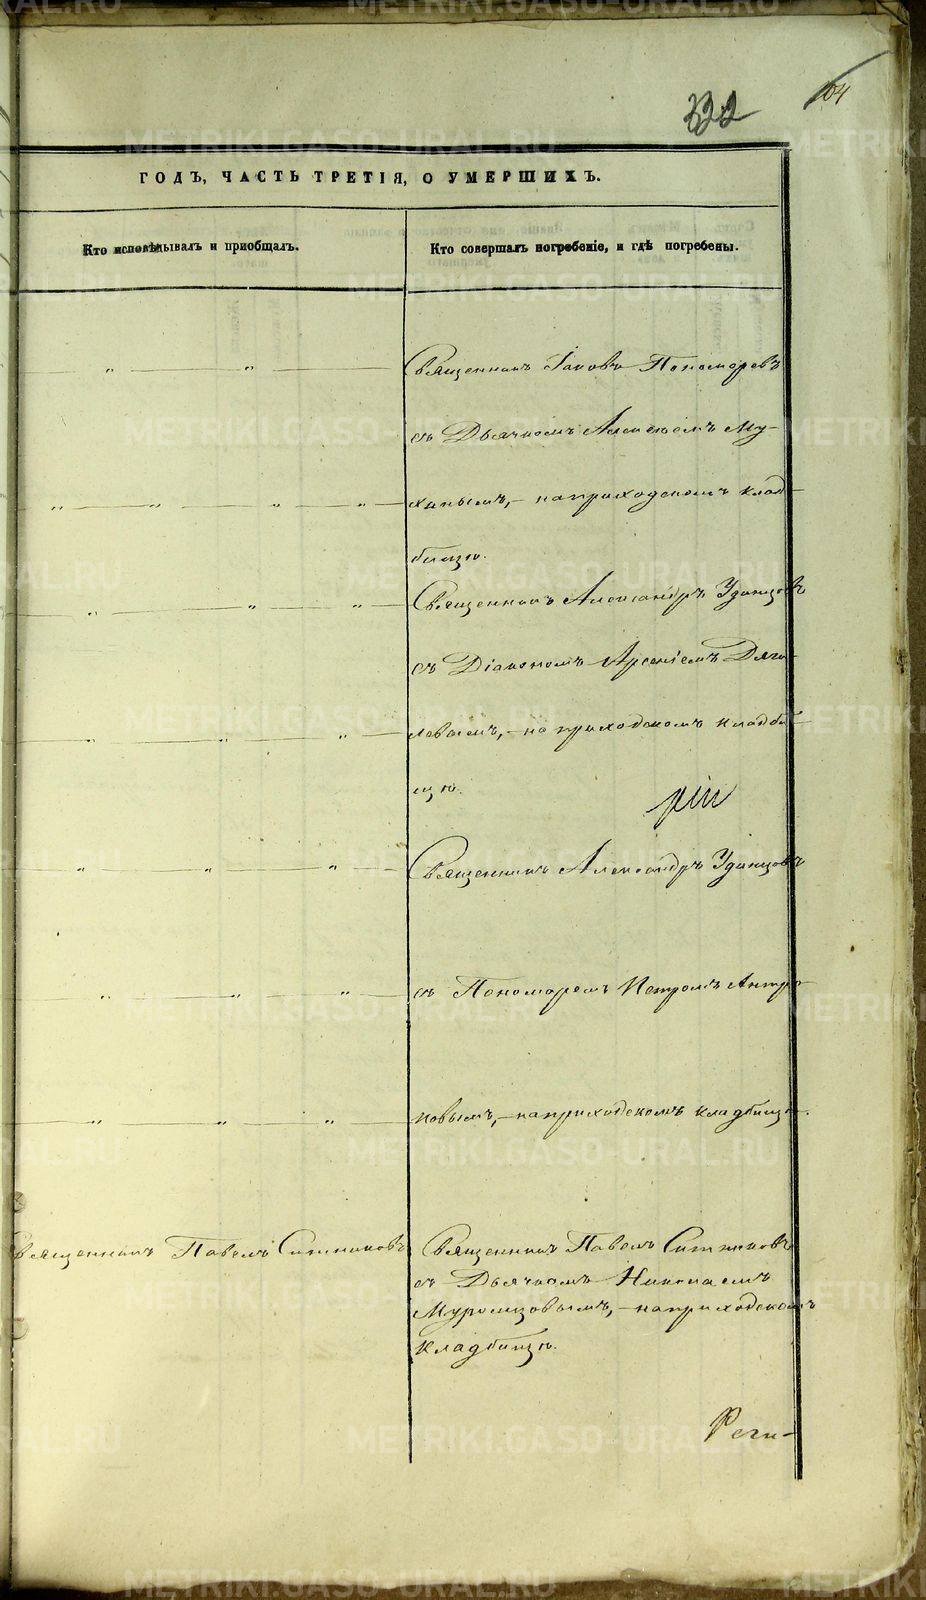 322
104
ГОДЪ, ЧАСТЬ ТРЕТІЯ, О УМЕРШИХЪ.
Кто исповѣдывалъ и пріобщалъ.
Кто совершалъ погребеніе, и гдѣ погребены.
Священникъ Іаковъ Пономаревъ
съ Дьячкомъ Алексѣемъ Му-
хинымъ, - на приходскомъ клад-
бищѣ.
Священникъ Александръ Удинцовъ
съ Діакономъ Арсеніемъ Дяги-
левымъ, - на приходскомъ кладби-
щѣ.
Священникъ Александръ Удинцовъ
съ Пономаремъ Петромъ Антро-
повымъ, - на приходскомъ кладбищѣ.
Священникъ Павелъ Ситниковъ
Священникъ Павелъ Ситниковъ
съ Дьячкомъ Николаемъ
Муромцовымъ, - на приходскомъ
кладбищѣ.
METRIKI.GASO-URAL.RU